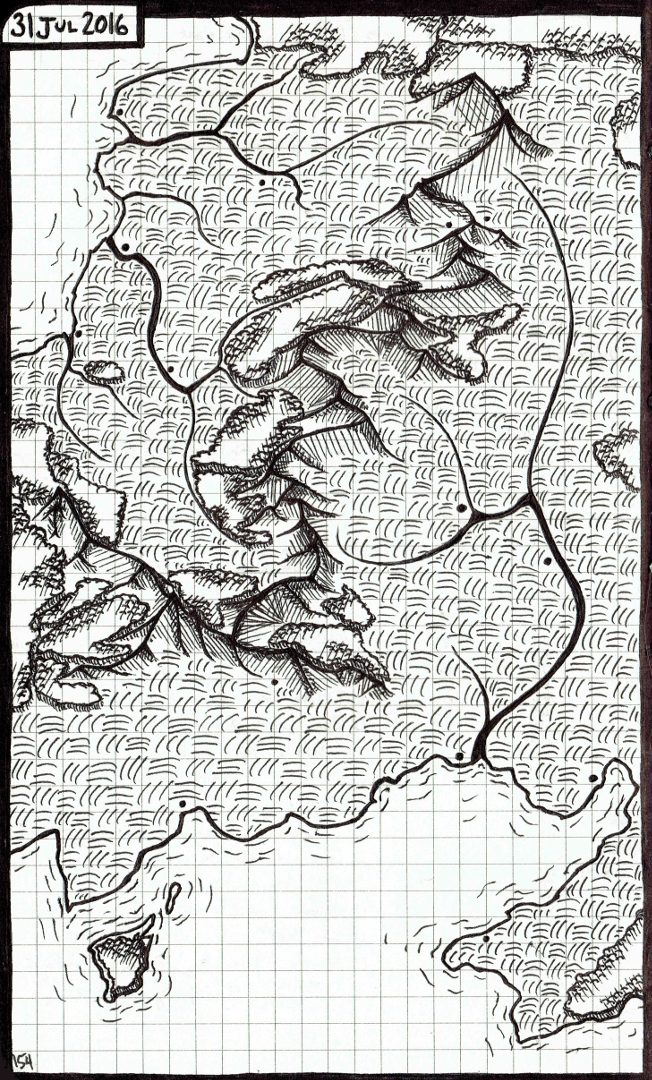 31 JUL 2016
154